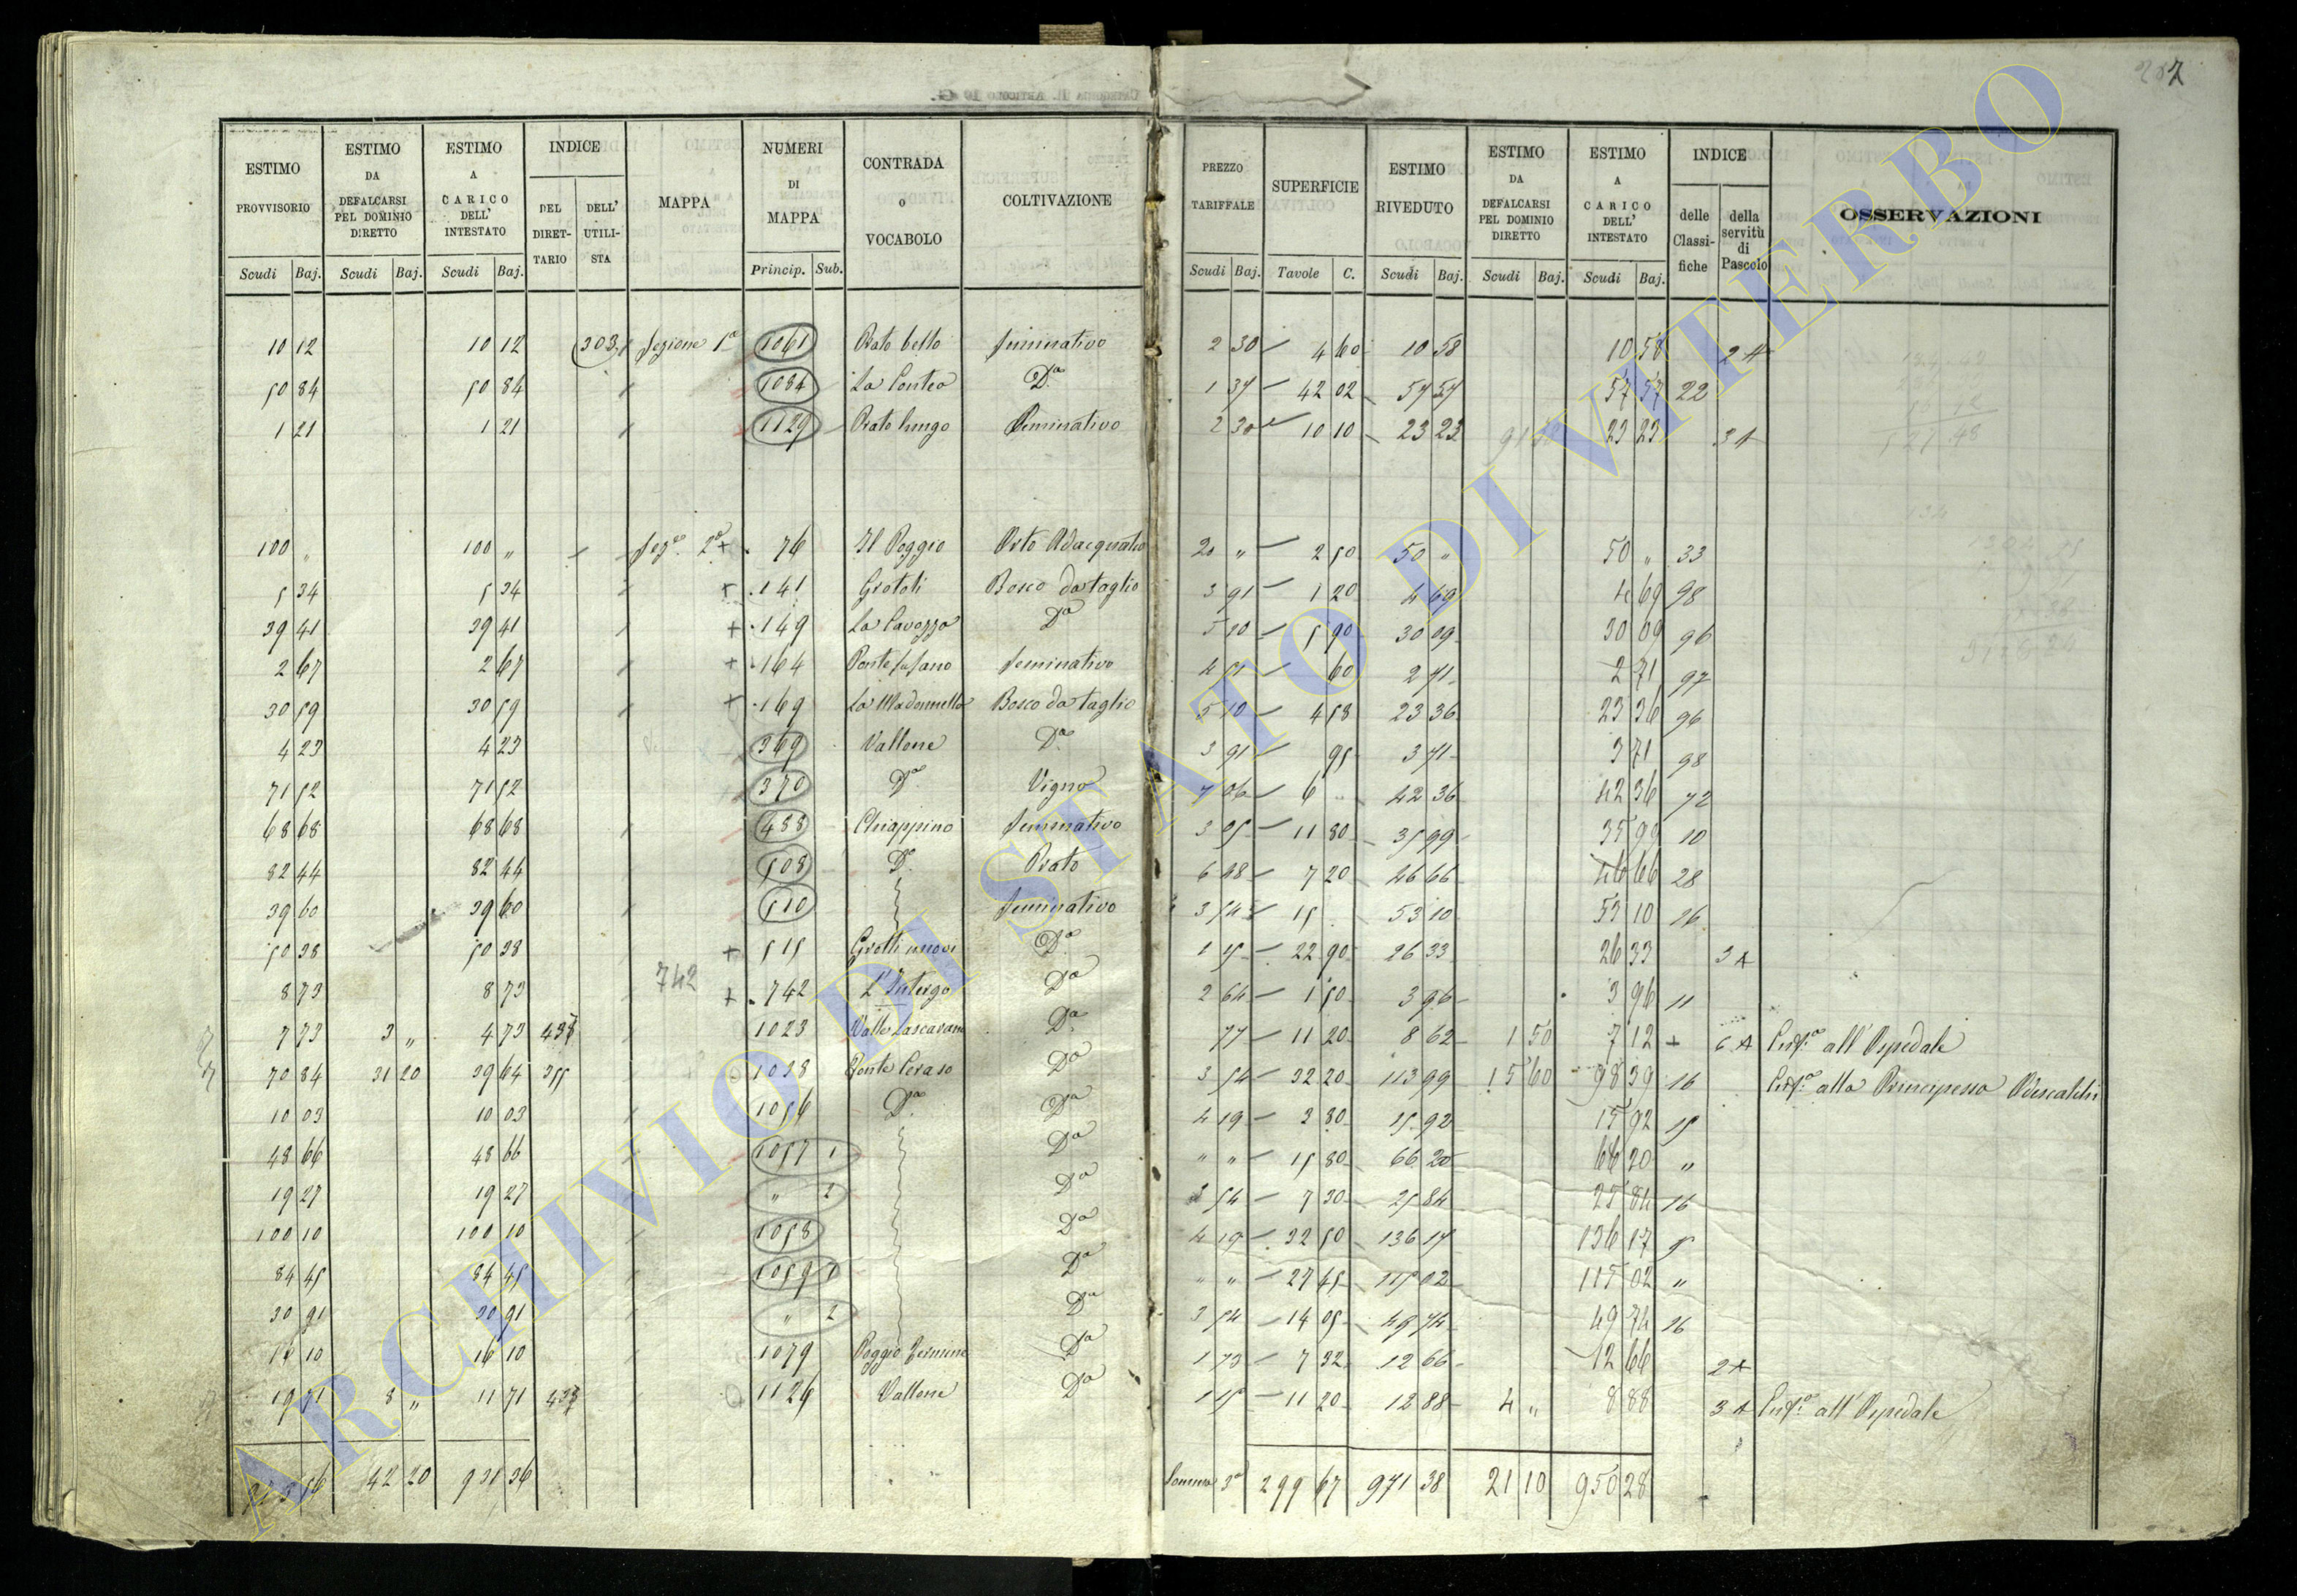 207
ESTIMO PROVVISORIO | ESTIMO DA DEFALCARSI PEL DOMINIO DIRETTO | ESTIMO A CARICO DELL' INTESTATO | INDICE | MAPPA | NUMERI DI MAPPA | CONTRADA o VOCABOLO | COLTIVAZIONE | PREZZO TARIFFALE | SUPERFICIE | ESTIMO RIVEDUTO | ESTIMO DA DEFALCARSI PEL DOMINIO DIRETTO | ESTIMO A CARICO DELL' INTESTATO | INDICE | OSSERVAZIONI
DEL DIRETTARIO | DELL' UTILISTA | delle Classifiche | della servitù di Pascolo
Scudi Baj. | Scudi Baj. | Scudi Baj. | Princip. Sub. | Scudi Baj. | Tavole C. | Scudi Baj. | Scudi Baj. | Scudi Baj.
10 12 | 10 12 | 303 | Sezione 1a | 1061 | Prato bello | Seminativo | 2 30 | 4 60 | 10 58 | 10 58 | 2 A
50 84 | 50 84 | 1084 | La Pontca | Da | 1 37 | 42 02 | 57 57 | 57 57 | 22
1 21 | 1 21 | 1129 | Prato lungo | Seminativo | 2 30 | 10 10 | 23 23 | 23 23 | 3 A
100 „ | 100 „ | Seze 2a + | 76 | Il Poggio | Orto Adacquativo | 20 „ | 2 50 | 50 „ | 50 „ | 33
5 34 | 5 34 | + 141 | Grotoli | Bosco da taglio | 3 91 | 1 20 | 4 69 | 4 69 | 98
39 41 | 39 41 | + 149 | La Cavozza | Da | 5 10 | 5 90 | 30 09 | 30 09 | 96
2 67 | 2 67 | + 164 | Seminativo | 4 51 | 60 | 2 71 | 2 71 | 97
30 59 | 30 59 | + 169 | La Madonnella | Bosco da taglio | 5 10 | 4 58 | 23 36 | 23 36 | 96
4 23 | 4 23 | 369 | Vallone | Da | 3 91 | 95 | 3 71 | 3 71 | 98
71 52 | 71 52 | 370 | Da | Vigna | 7 06 | 6 | 42 36 | 42 36 | 72
68 68 | 68 68 | 488 | Chiappino | Seminativo | 3 05 | 11 80 | 35 99 | 35 99 | 10
82 44 | 82 44 | 508 | Da | Prato | 7 20 | 46 66 | 46 66 | 28
39 60 | 39 60 | 510 | Seminativo | 3 54 | 15 | 53 10 | 53 10 | 16
50 38 | 50 38 | + 515 | Da | 1 15 | 22 90 | 26 33 | 26 33 | 3 A
8 73 | 8 73 | 742 | + 742 | L'Intergo | Da | 2 64 | 1 50 | 3 96 | 3 96 | 11
7 73 | 3 „ | 4 73 | 1023 | Valle Lascarana | Da | 77 | 11 20 | 8 62 | 1 50 | 7 12 | + | 6 A | all'Ospedale
70 84 | 31 20 | 39 64 | 355 | 1038 | Ponte Ceraso | Da | 3 54 | 32 20 | 113 99 | 15 60 | 98 39 | 16 | alla Principessa Odescalchi
10 03 | 10 03 | 1056 | Da | Da | 4 19 | 3 80 | 15 92 | 15 92 | 15
48 66 | 48 66 | 1057 1 | Da | „ „ | 15 80 | 66 20 | 66 20 | „
19 27 | 19 27 | „ 2 | Da | 3 54 | 7 30 | 25 84 | 25 84 | 16
100 10 | 100 10 | 1058 | Da | 4 19 | 32 50 | 136 17 | 136 17 | 15
84 45 | 84 45 | 1059 1 | Da | „ „ | 27 45 | 115 02 | 115 02 | „
30 91 | 30 91 | „ 2 | Da | 3 54 | 14 05 | 49 74 | 49 74 | 16
16 10 | 16 10 | 1079 | Poggio Termine | Da | 1 73 | 7 32 | 12 66 | 12 66 | 2 A
19 71 | 8 „ | 11 71 | 1126 | Vallone | Da | 1 15 | 11 20 | 12 88 | 4 „ | 8 88 | 3 A | all'Ospedale
973 56 | 42 20 | 931 36 | Somma 3a | 299 67 | 971 38 | 21 10 | 950 28
ARCHIVIO DI STATO DI VITERBO